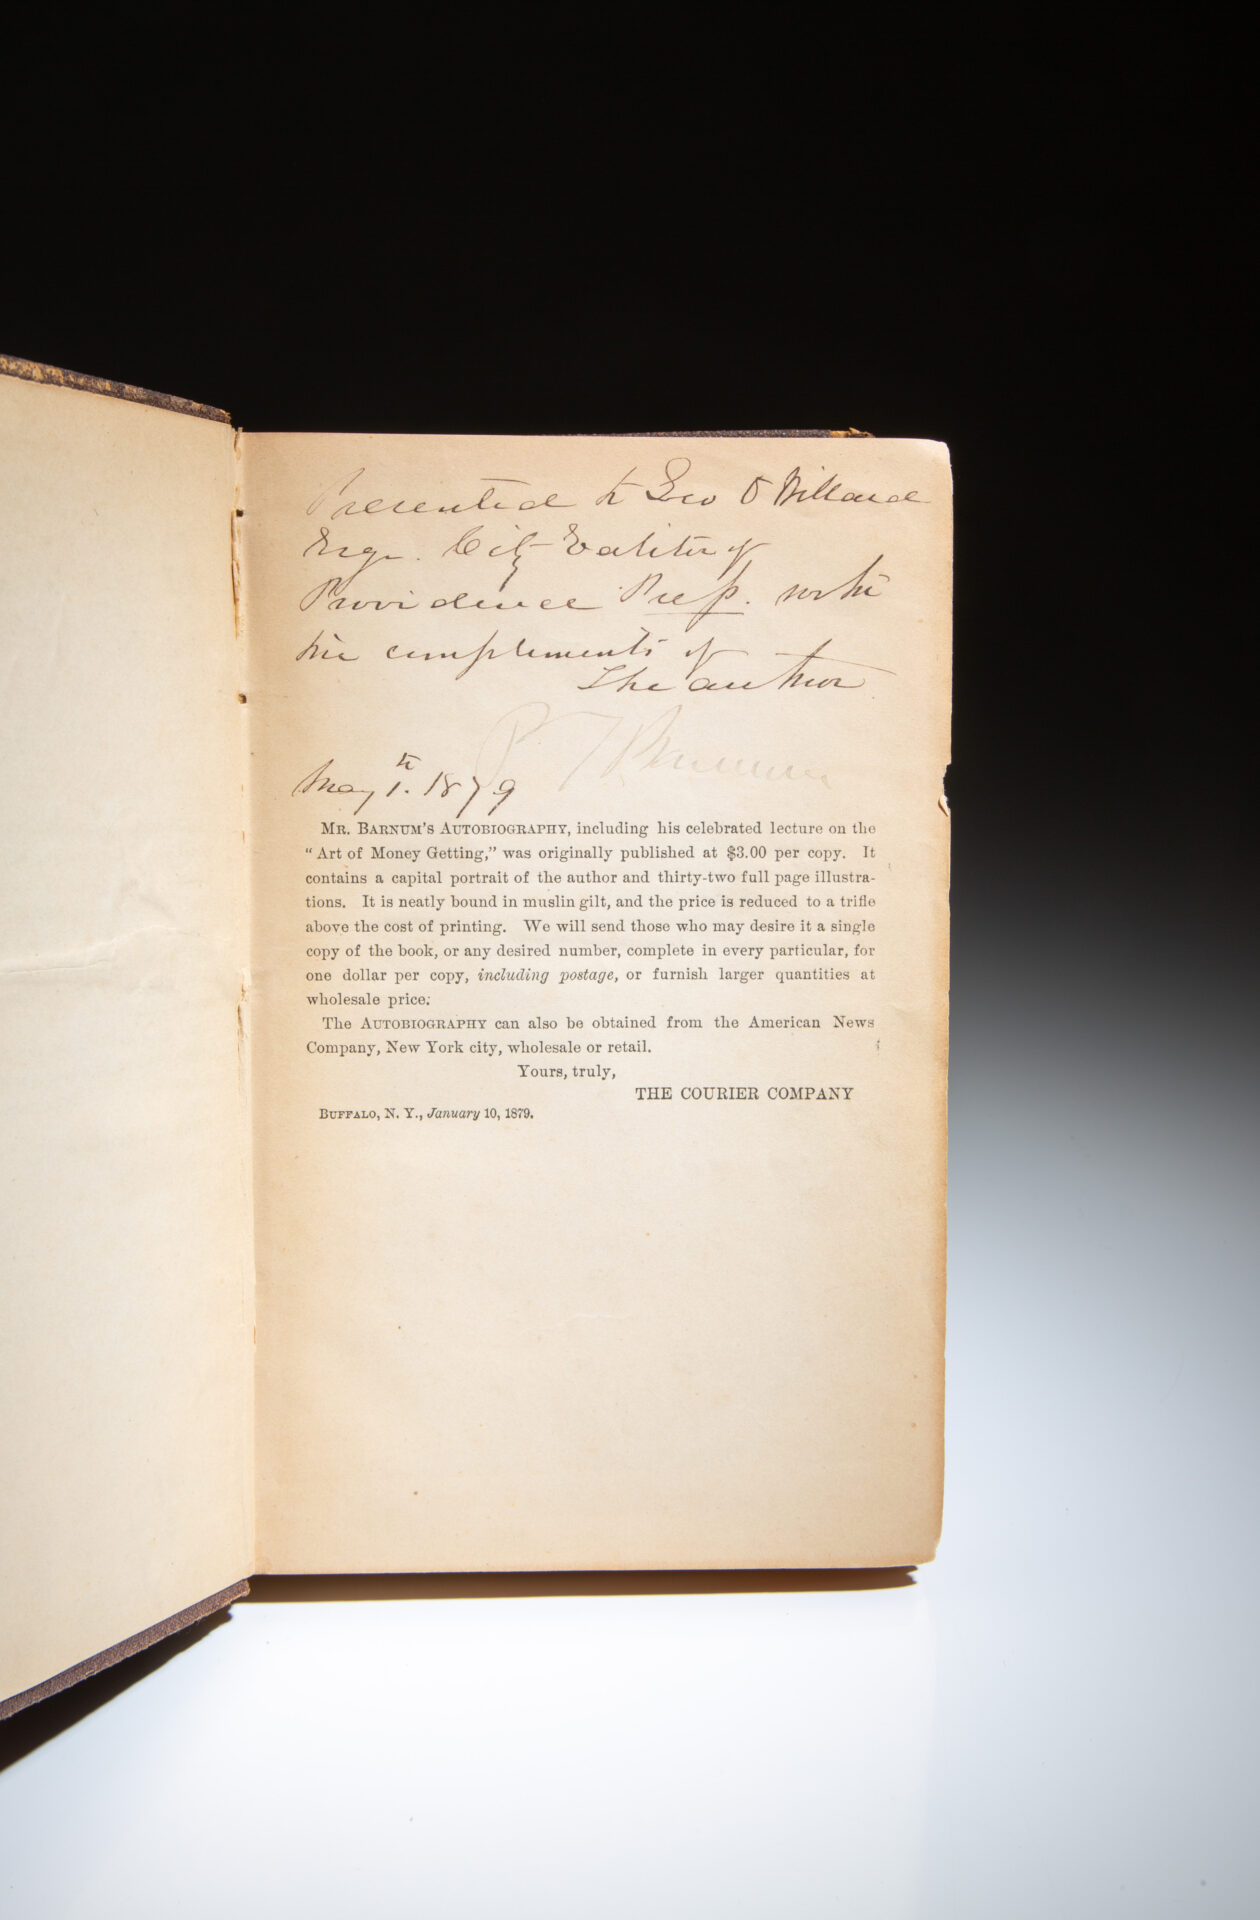 Presented to Geo O Willard
Esqr. City Editor of
Providence Press. with
the compliments of
The author
P T Barnum
May 1st. 1879
MR. BARNUM'S AUTOBIOGRAPHY, including his celebrated lecture on the
"Art of Money Getting," was originally published at $3.00 per copy. It
contains a capital portrait of the author and thirty-two full page illustra-
tions. It is neatly bound in muslin gilt, and the price is reduced to a trifle
above the cost of printing. We will send those who may desire it a single
copy of the book, or any desired number, complete in every particular, for
one dollar per copy, including postage, or furnish larger quantities at
wholesale price.
The AUTOBIOGRAPHY can also be obtained from the American News
Company, New York city, wholesale or retail.
Yours, truly,
THE COURIER COMPANY
BUFFALO, N. Y., January 10, 1879.